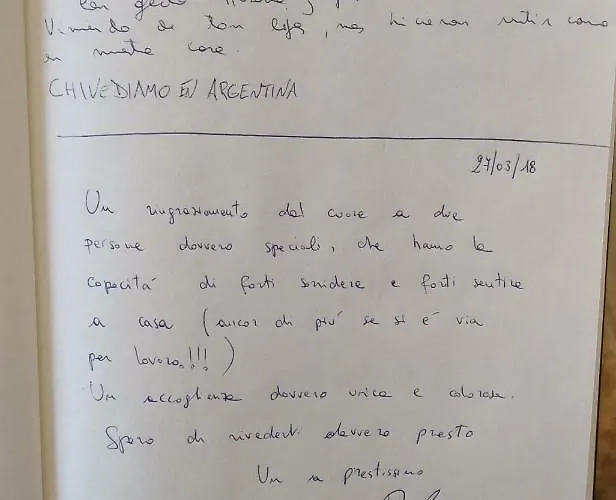 Viniendo de tan lejos, nos hicieron sentir como
en nuestra casa.
CHIVEDIAMO EN ARGENTINA
27/03/18
Un ringraziamento dal cuore a due
persone davvero speciali, che hanno la
capacità di farti sorridere e farti sentire
a casa (ancor di più se si è via
per lavoro!!!)
Un accoglienza davvero unica e calorosa.
Spero di rivederti davvero presto
Un a prestissimo